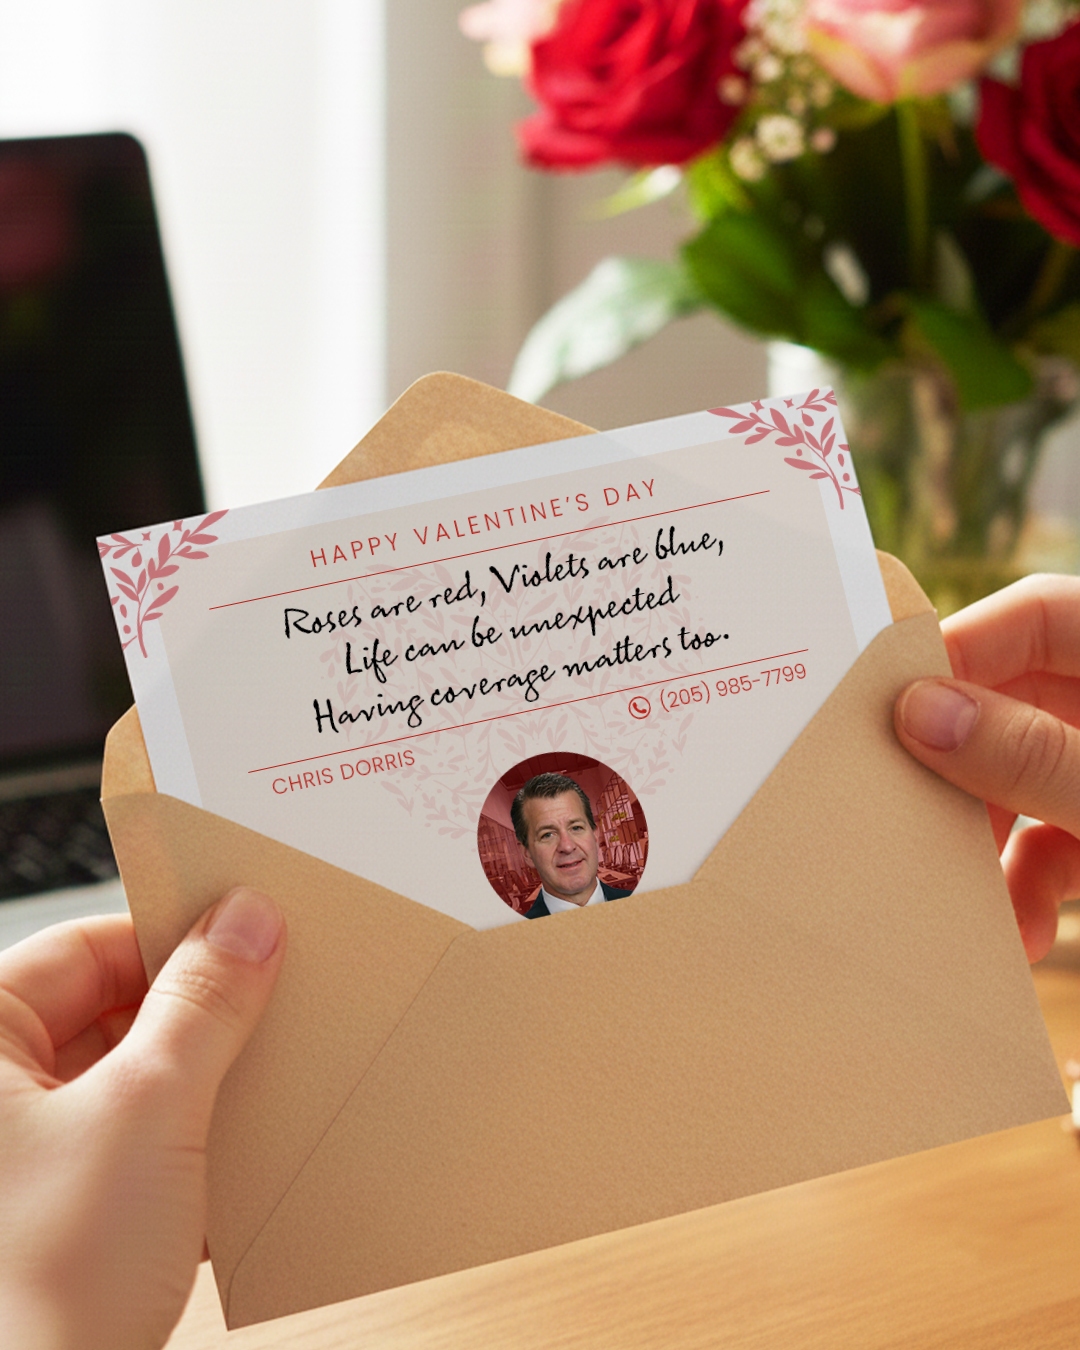 HAPPY VALENTINE'S DAY
Roses are red, Violets are blue,
Life can be unexpected
Having coverage matters too.
(205) 985-7799
CHRIS DORRIS